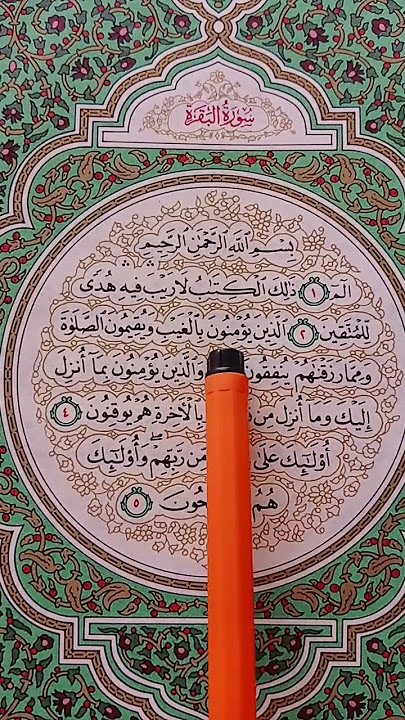 سُورَةُ الْبَقَرَةِ
بِسْمِ اللَّهِ الرَّحْمَٰنِ الرَّحِيمِ
الٓمٓ ١ ذَٰلِكَ الْكِتَٰبُ لَا رَيْبَ ۛ فِيهِ ۛ هُدًى
لِّلْمُتَّقِينَ ٢ الَّذِينَ يُؤْمِنُونَ بِالْغَيْبِ وَيُقِيمُونَ الصَّلَوٰةَ
وَمِمَّا رَزَقْنَٰهُمْ يُنفِقُونَ وَالَّذِينَ يُؤْمِنُونَ بِمَآ أُنزِلَ
إِلَيْكَ وَمَآ أُنزِلَ مِن بِالْءَاخِرَةِ هُمْ يُوقِنُونَ ٤
أُو۟لَٰٓئِكَ عَلَىٰ مِّن رَّبِّهِمْ ۖ وَأُو۟لَٰٓئِكَ
هُمُ ٥